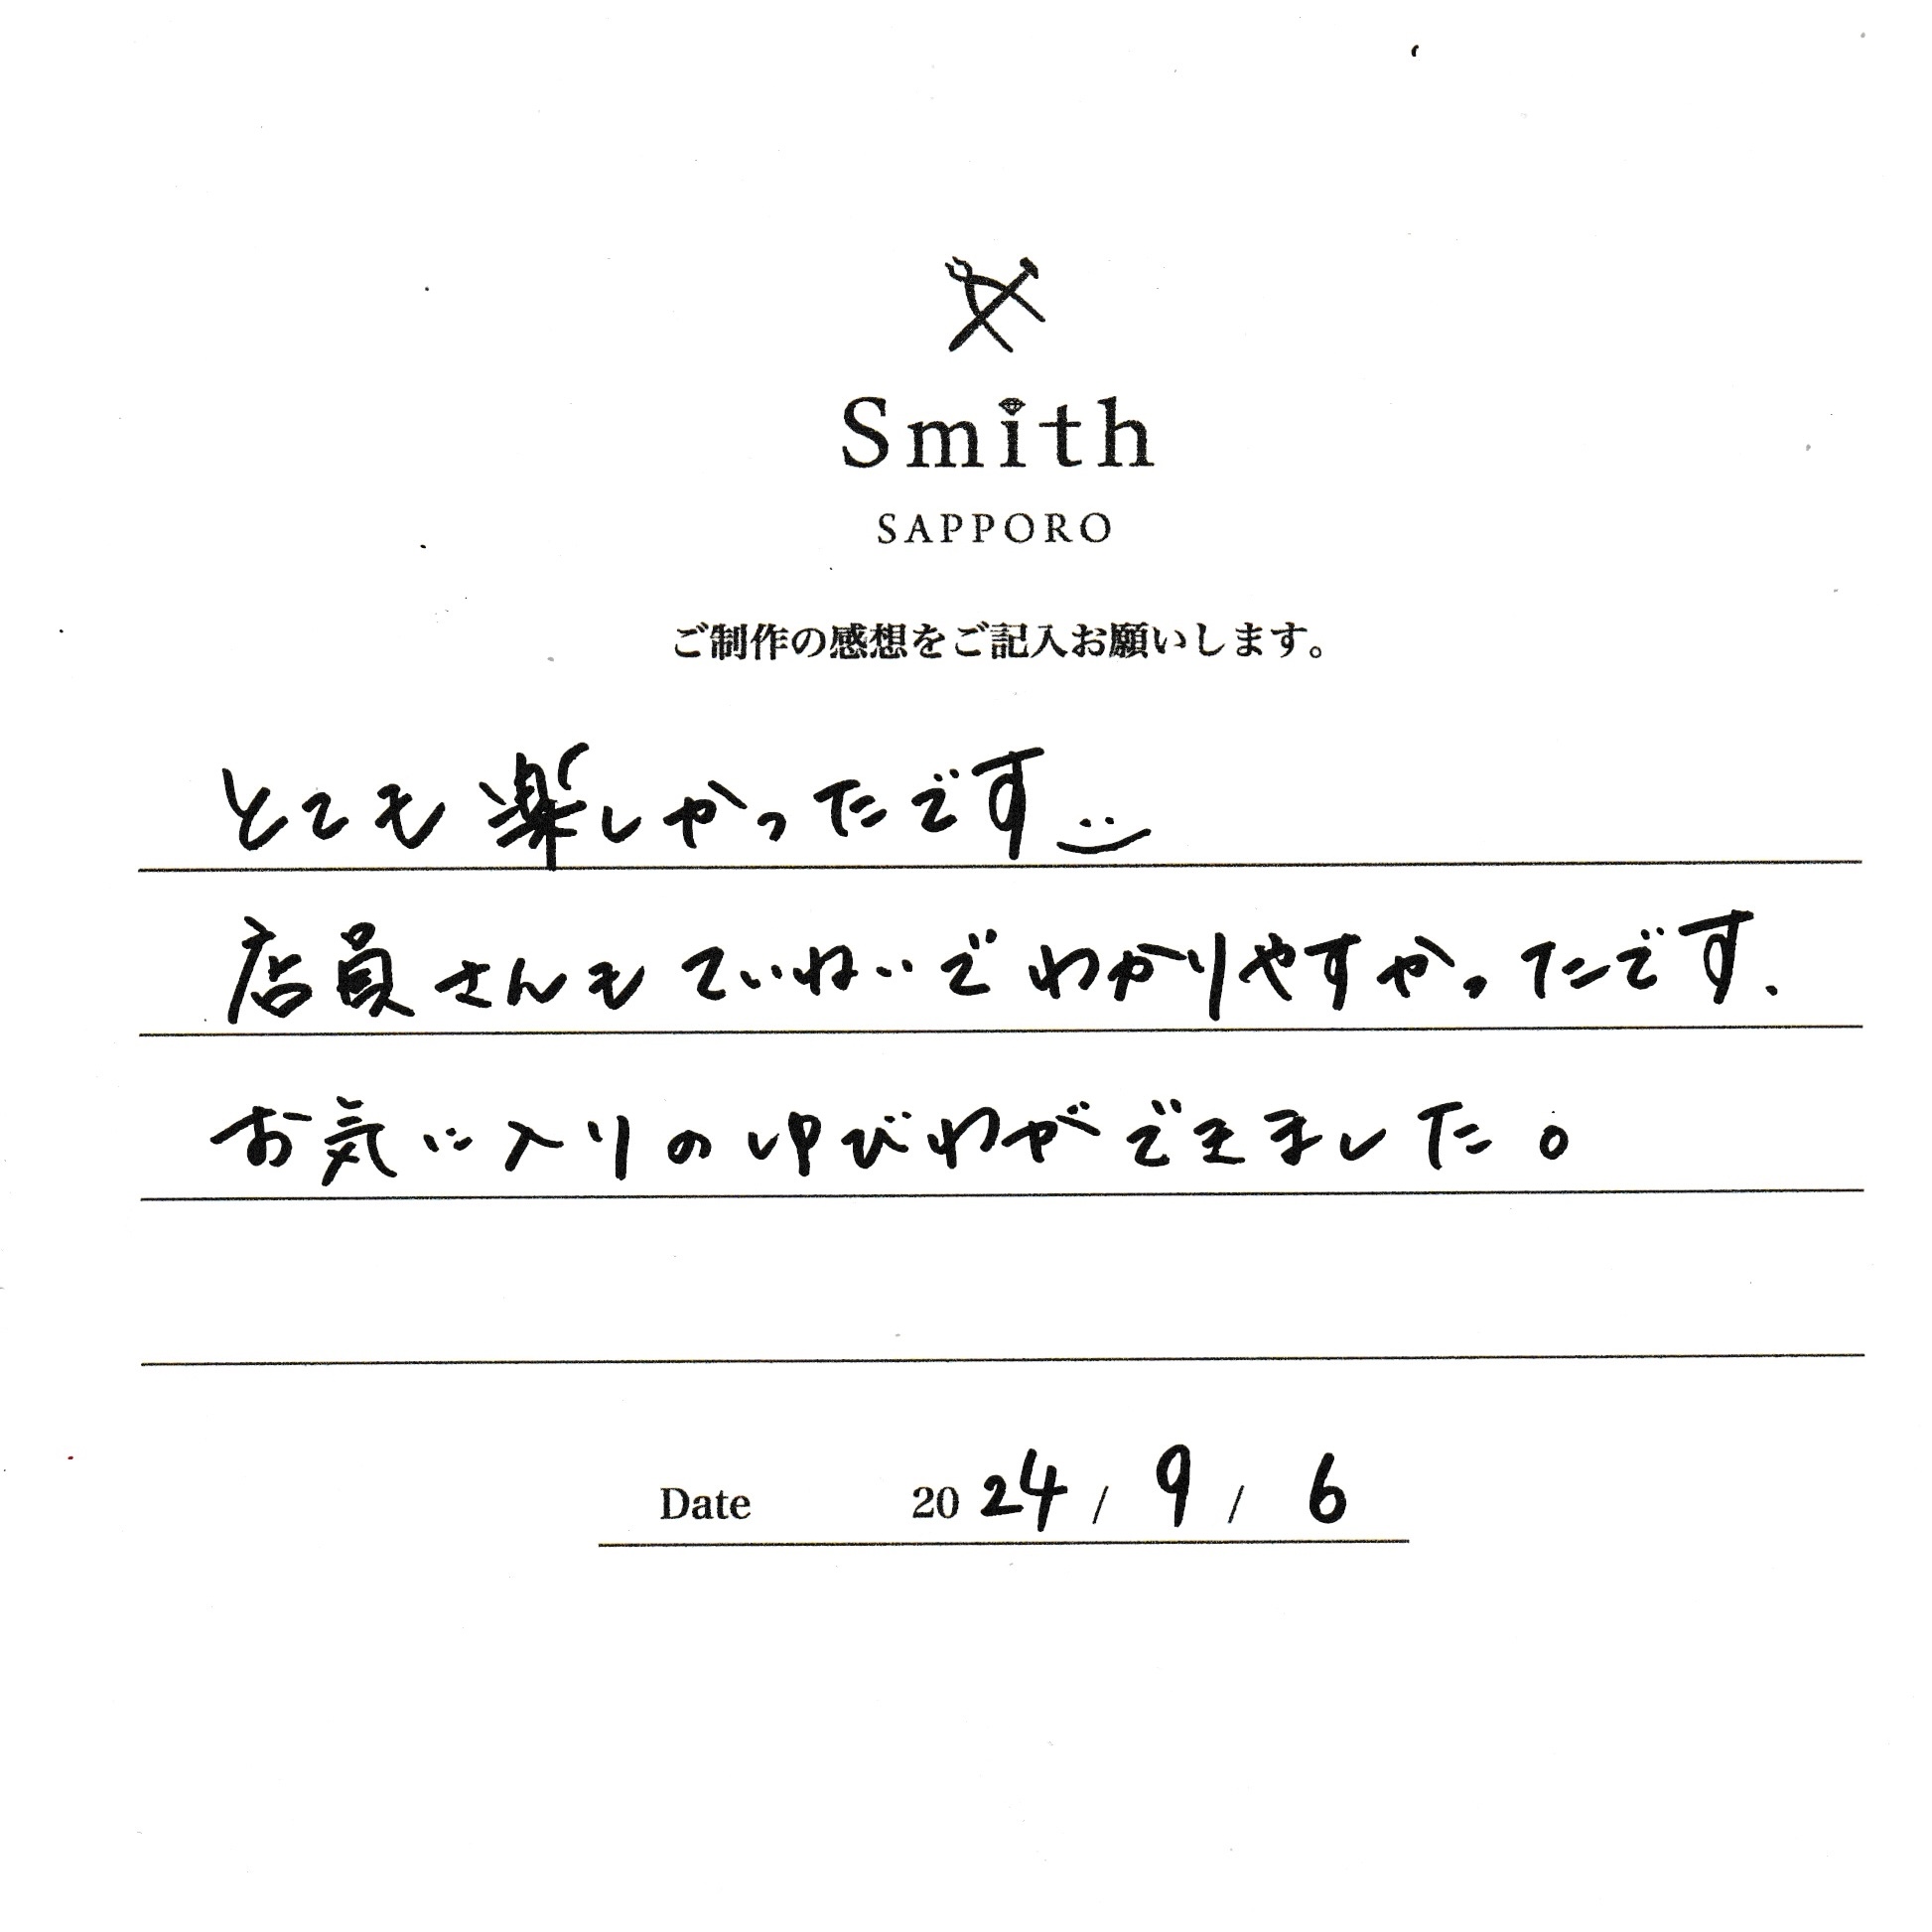 Smith
SAPPORO
ご制作の感想をご記入お願いします。
とても楽しかったです
店員さんもていねいでわかりやすかったです.
お気に入りのゆびわができました。
Date 2024/9/6